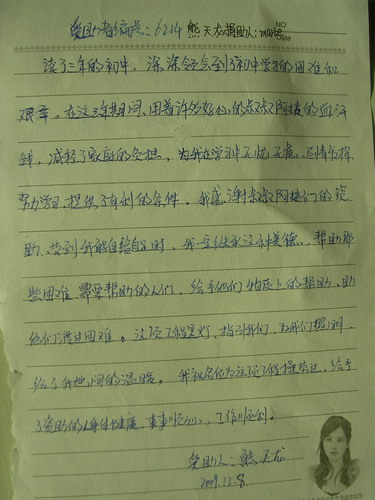 受助者编号：6214 熊天龙捐助人：marie
NO
Date
读了三年的初中，深深领会到了初中学习的困难和
艰辛。在这三年其间，用着许多好心的叔叔阿姨的血汗
钱，减轻了家庭的负担，为我在学习中无忧无虑、尽情发挥、
努力学习提供了有利的条件。我感谢叔叔阿姨们的资
助，等到我能自给自足时，我一定继承这种美德，帮助那
些困难需要帮助的人们，给予他们物质上的帮助，助
他们渡过困难。这项工程是灯，指引我们，为我们照明，
给了我世间的温暖。我祝各位为这项工程操劳过，给予
了资助的人身体健康，事事顺心，工作顺利。
受助人：熊天龙
2009.12.8